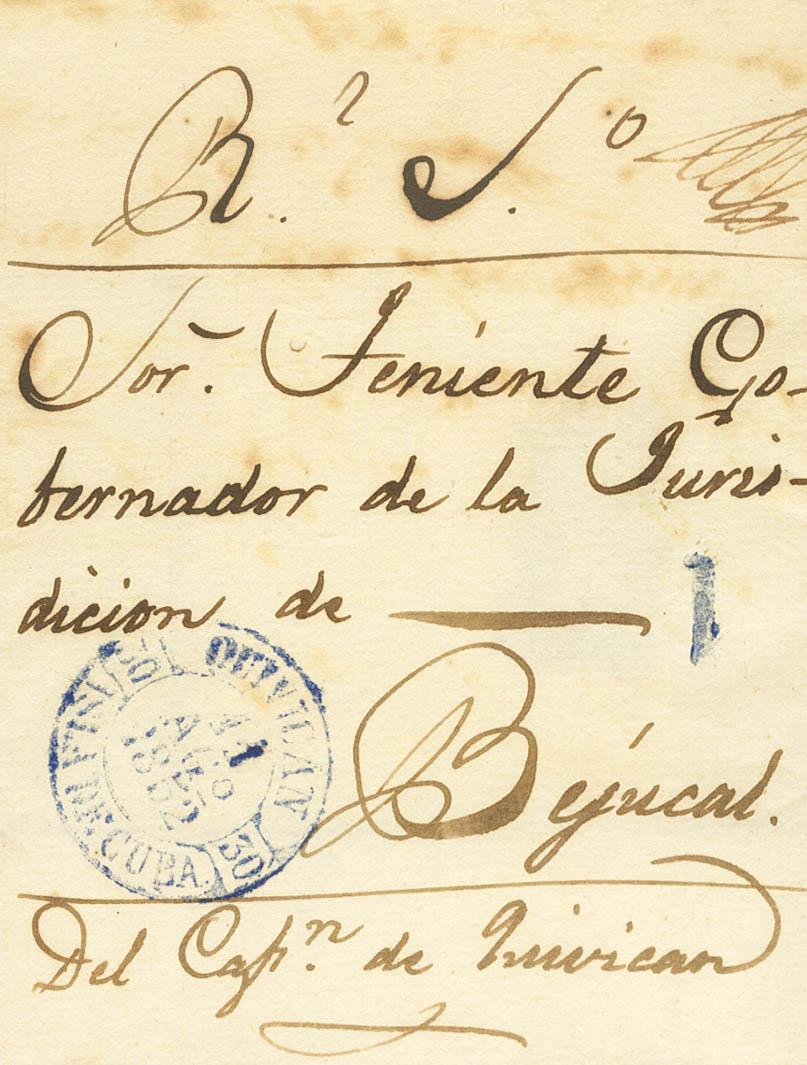 R.l S.o
Sor. Teniente Go-
bernador de la Juris-
dicion de
1
Bejucal.
QUIVICAN
30
11
AGO
1852
YSLA DE CUBA
30
Del Capn. de Quivican